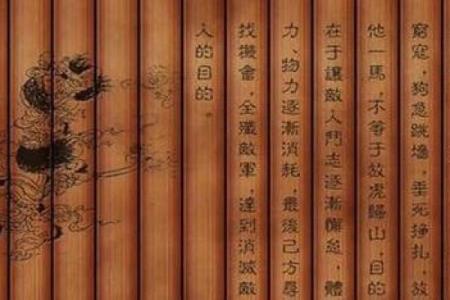 窮寇,狗急跳墻,垂死掙扎,放
他一馬,不等于放虎歸山,目的
在于讓敵人鬥走逐漸懈怠,體
力、物力逐漸消耗,最後己方尋
找機會,全殲敵軍,達到消滅敵
人的目的